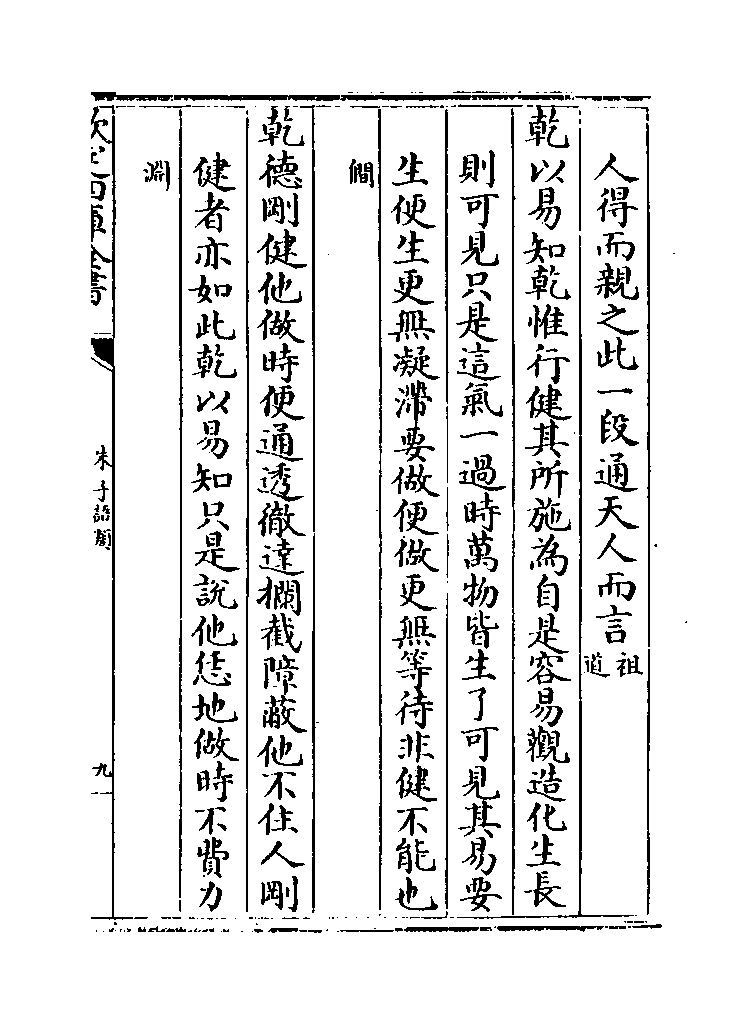 人得而親之此一段通天人而言祖道
乾以易知乾惟行健其所施為自是容易觀造化生長
則可見只是這氣一過時萬物皆生了可見其易要
生便生更無凝滯要做便做更無等待非健不能也
僩
乾德剛健他做時便通透徹達攔截障蔽他不住人剛
健者亦如此乾以易知只是說他恁地做時不費力
淵
欽定四庫全書
朱子語類
九